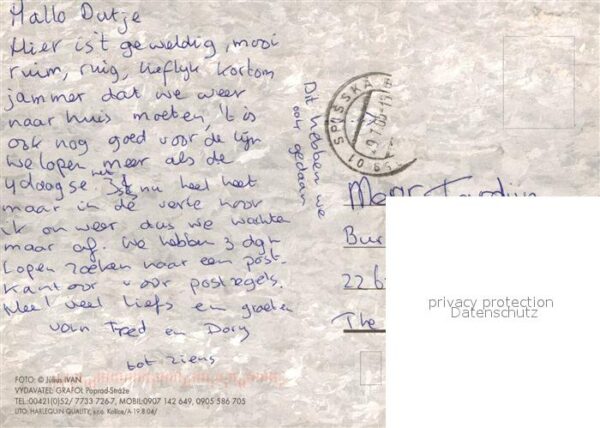 Hallo Dutje
Hier is't geweldig, mooi
ruim, ruig, lieflijk kortom
jammer dat we weer
naar huis moeten, 't is
ook nog goed voor de lijn
we lopen meer als de
4daagse nu heel heet
maar in de verte hoor
ik onweer dus we wachten
maar af. We hebben 3 dgn
lopen zoeken naar een post-
kantoor voor postzegels.
Heel veel liefs en groeten
van Fred en Dory
tot ziens
Dit hebben we
ook gedaan
SPIŠSKÁ
Mevr
Bur
226
The
privacy protection
Datenschutz
FOTO: © Július IVAN
VYDAVATEĽ: GRAFOL Poprad-Stráže
TEL.:00421(0)52/ 7733 726-7, MOBIL:0907 142 649, 0905 586 705
LITO: HARLEQUIN QUALITY, s.r.o. Košice/A 19.8 04/